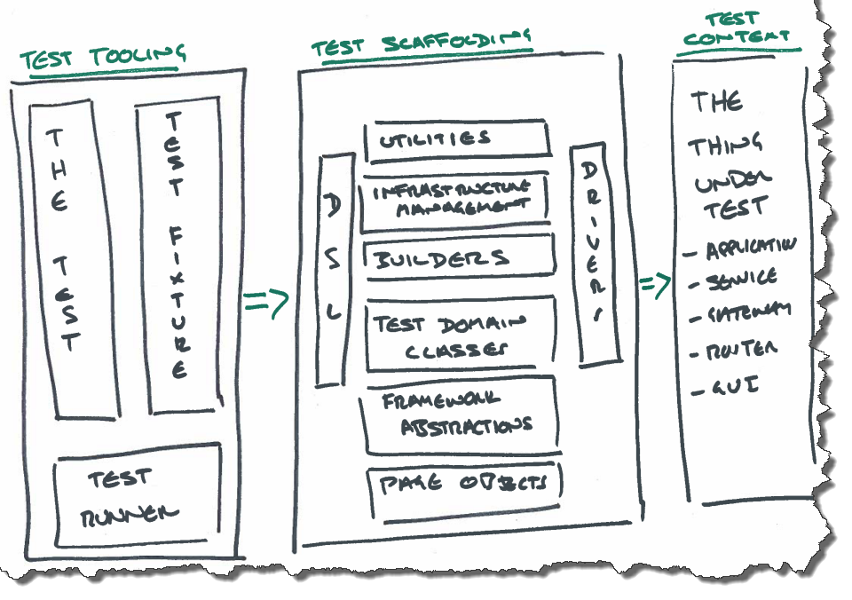 TEST TOOLING
THE TEST
TEST FIXTURE
TEST
RUNNER
TEST SCAFFOLDING
DSL
UTILITIES
INFRASTRUCTURE
MANAGEMENT
BUILDERS
TEST DOMAIN
CLASSES
FRAMEWORK
ABSTRACTIONS
PAGE OBJECTS
DRIVERS
TEST
CONTEXT
THE
THING
UNDER
TEST
- APPLICATION
- SERVICE
- GATEWAY
- ROUTER
- GUI